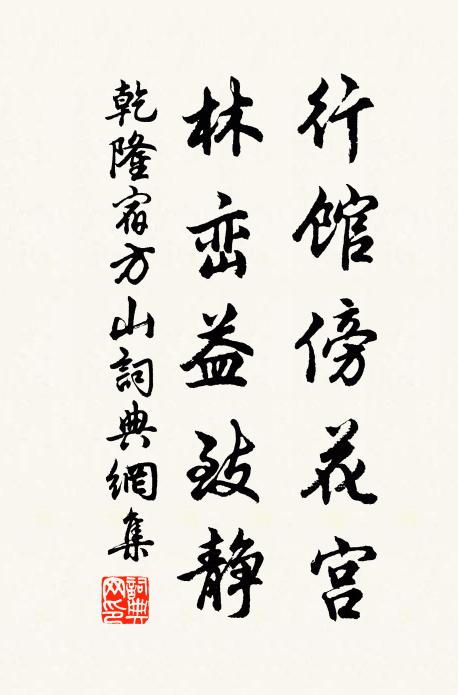 行馆傍花宫
林峦益致静
乾隆宿方山詞典網集
詞典網印